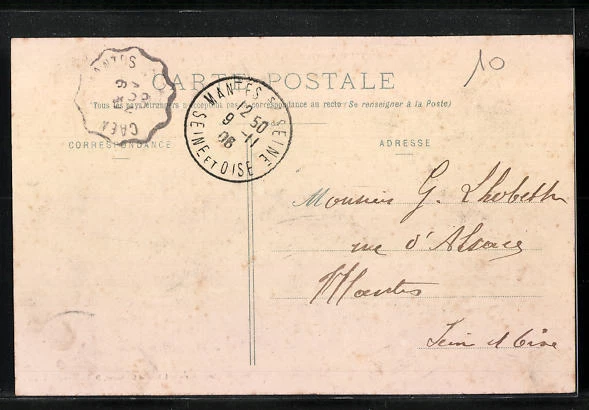 10
CARTE POSTALE
Tous les pays étrangers n'acceptent pas la correspondance au recto (Se renseigner à la Poste)
CORRESPONDANCE
ADRESSE
CAEN
MANTES S. SEINE
12 50
9 -11
06
SEINE ET OISE
Monsieur G. Lhobeth
rue d'Alsace
Mantes
Seine et Oise